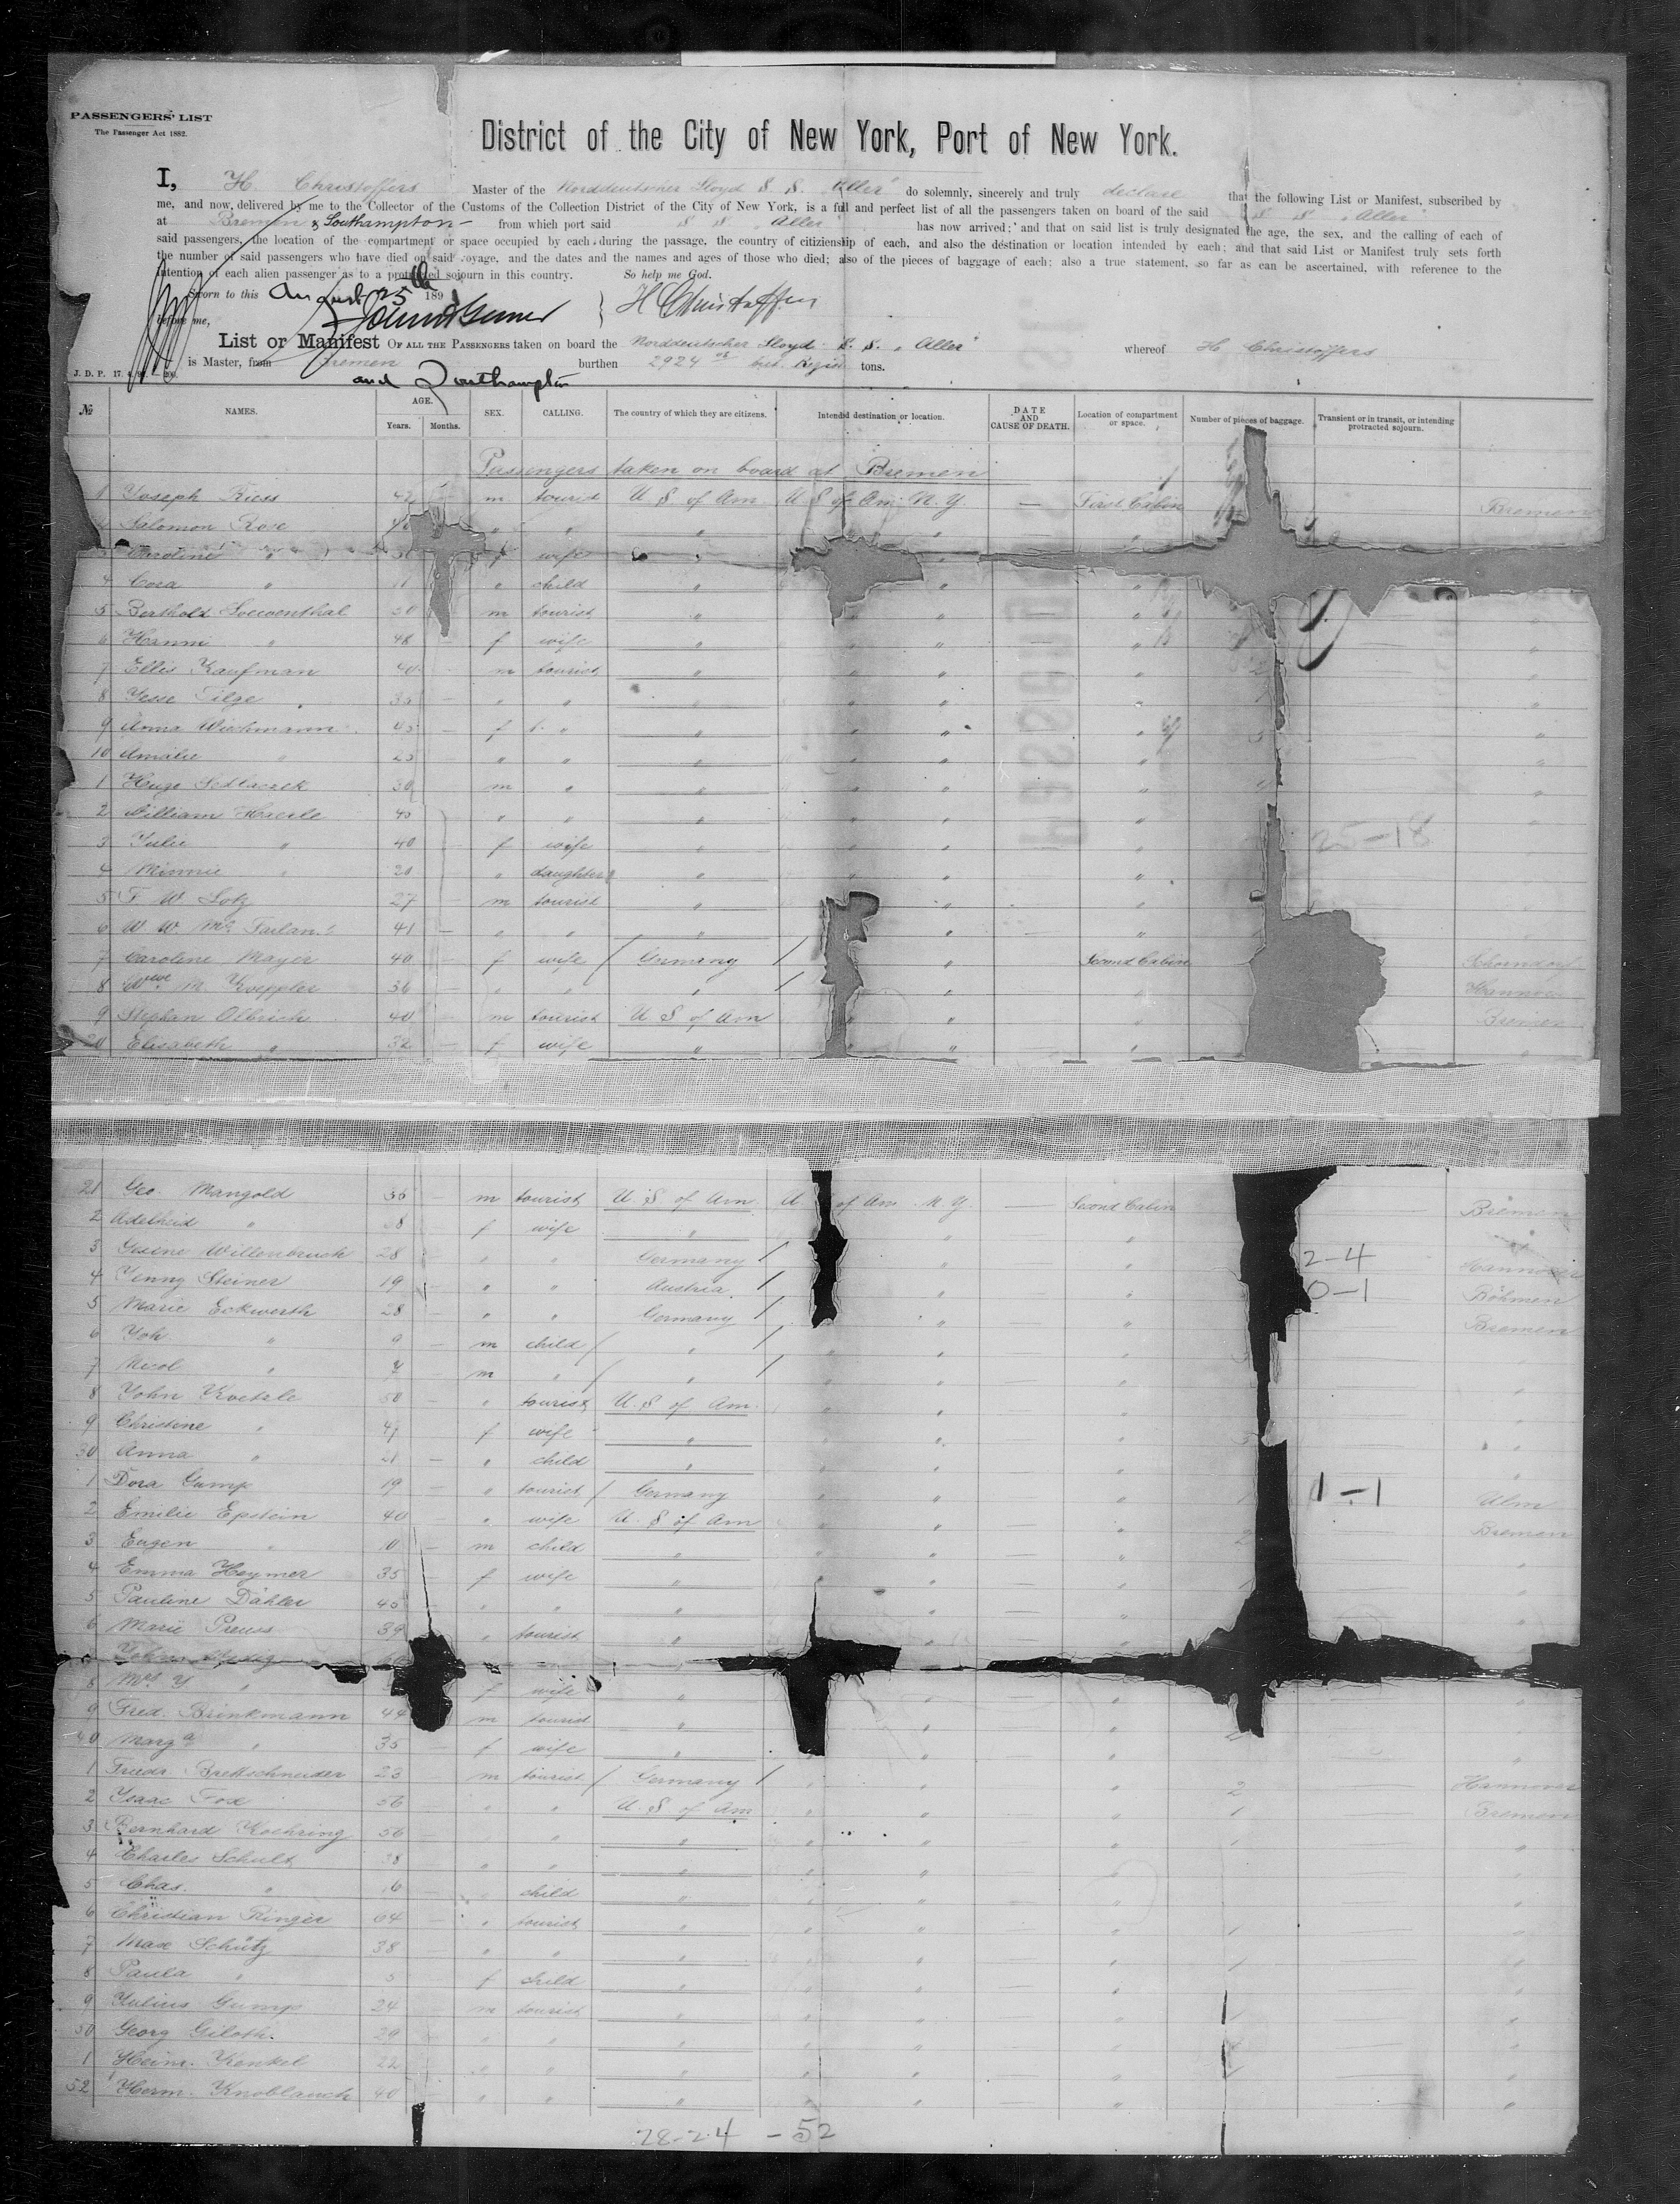 PASSENGERS' LIST
The Passenger Act 1882.
District of the City of New York, Port of New York.
I, H. Christoffers Master of the Norddeutscher Lloyd S. S. "Aller" do solemnly, sincerely and truly declare that the following List or Manifest, subscribed by
me, and now delivered by me to the Collector of the Customs of the Collection District of the City of New York, is a full and perfect list of all the passengers taken on board of the said S S "Aller"
at Bremen & Southampton from which port said S S "Aller" has now arrived; and that on said list is truly designated the age, the sex, and the calling of each of
said passengers, the location of the compartment or space occupied by each during the passage, the country of citizienship of each, and also the destination or location intended by each; and that said List or Manifest truly sets forth
the number of said passengers who have died on said voyage, and the dates and the names and ages of those who died; also of the pieces of baggage of each; also a true statement, so far as can be ascertained, with reference to the
intention of each alien passenger as to a protracted sojourn in this country. So help me God.
Sworn to this August 25th 189
before me, } H Christoffers
List or Manifest OF ALL THE PASSENGERS taken on board the Norddeutscher Lloyd S. S. "Aller" whereof H Christoffers
is Master, from Bremen burthen 2924 tons.
J. D. P. 17. 4.
and Southampton
№ NAMES. AGE. Years. Months. SEX. CALLING. The country of which they are citizens. Intended destination or location. DATE AND CAUSE OF DEATH. Location of compartment or space. Number of pieces of baggage. Transient or in transit, or intending protracted sojourn.
Passengers taken on board at Bremen
1 Joseph Riess 42 m tourist U S. of Am. U S of Am. N. Y. — First Cabin Bremen
Salomon Rose " " " "
Caroline " f wife " "
4 Cora " " child " " "
5 Berthold Loewenthal 50 m tourist " " "
6 Hanni " 48 f wife " " "
7 Ellis Kaufman 40 m tourist " " " 2
8 Jesse Tilge 35 " " " " "
9 Anna Wichmann 45 f " " " "
10 Amalie " 25 " " " " "
1 Hugo Sedlaczek 30 m " " " "
2 William Haerle 45 " " " " "
3 Julie " 40 f wife " " "
25-18
4 Minnie " 20 " daughter " " "
5 F W Lotz 27 m tourist " " "
6 W W Mc Farlan 41 " " " " "
7 Caroline Mayer 40 f wife / Germany / " Second Cabin Schorndorf
8 Wwe M. Koeppler 36 " " " / " Hannover
9 Stephan Olbrich 40 m tourist U S of Am " " Bremen
20 Elisabeth " 32 f wife " " "
21 Geo. Mangold 36 m tourist U. S of Am. U of Am N. Y. — Second Cabin Bremen
2 Adelheid " 28 f wife " " "
3 Gesine Willenbruch 28 " " Germany / " " 2-4 Hannover
4 Jenny Steiner 19 " " Austria / " " 0-1 Böhmen
5 Marie Eckwerth 28 " " Germany / " " Bremen
6 Joh " 9 m child / " / " "
7 Nicol " 7 m " / " / " "
8 John Koetzle 50 " tourist U. S of Am. " " "
9 Christine " 47 f wife " " "
30 Anna " 21 " child " " "
1 Dora Gump 19 " tourist / Germany " " 1-1 Ulm
2 Emilie Epstein 40 " wife U. S of Am " " 2 Bremen
3 Eugen " 10 m child " " "
4 Emma Heymer 35 f wife " " "
5 Pauline Dähler 45 " " " " "
6 Marie Preuss 39 " tourist " " "
8 Mrs J " f wife " " "
9 Fred. Brinkmann 44 m tourist " " "
40 Marga " 35 f wife " " "
1 Friedr. Brettschneider 23 m tourist / Germany / " " 2 Hannover
2 Isaac Fox 56 " " U. S of Am " " 1 Bremen
3 Bernhard Koehring 56 " " " " " 1
4 Charles Schult 38 " " " " "
5 Chas. " 6 child " " "
6 Christian Ringer 64 " tourist " " " 1
7 Max Schütz 38 " " " " " 1
8 Paula " 5 f child " " "
9 Julius Gump 24 m tourist " " " 1
50 Georg Giloth. 29 " " " " "
1 Heinr. Kenkel 22 " " " " " 1
52 Herm. Knoblauch 40 " " " " "
28-24 - 52